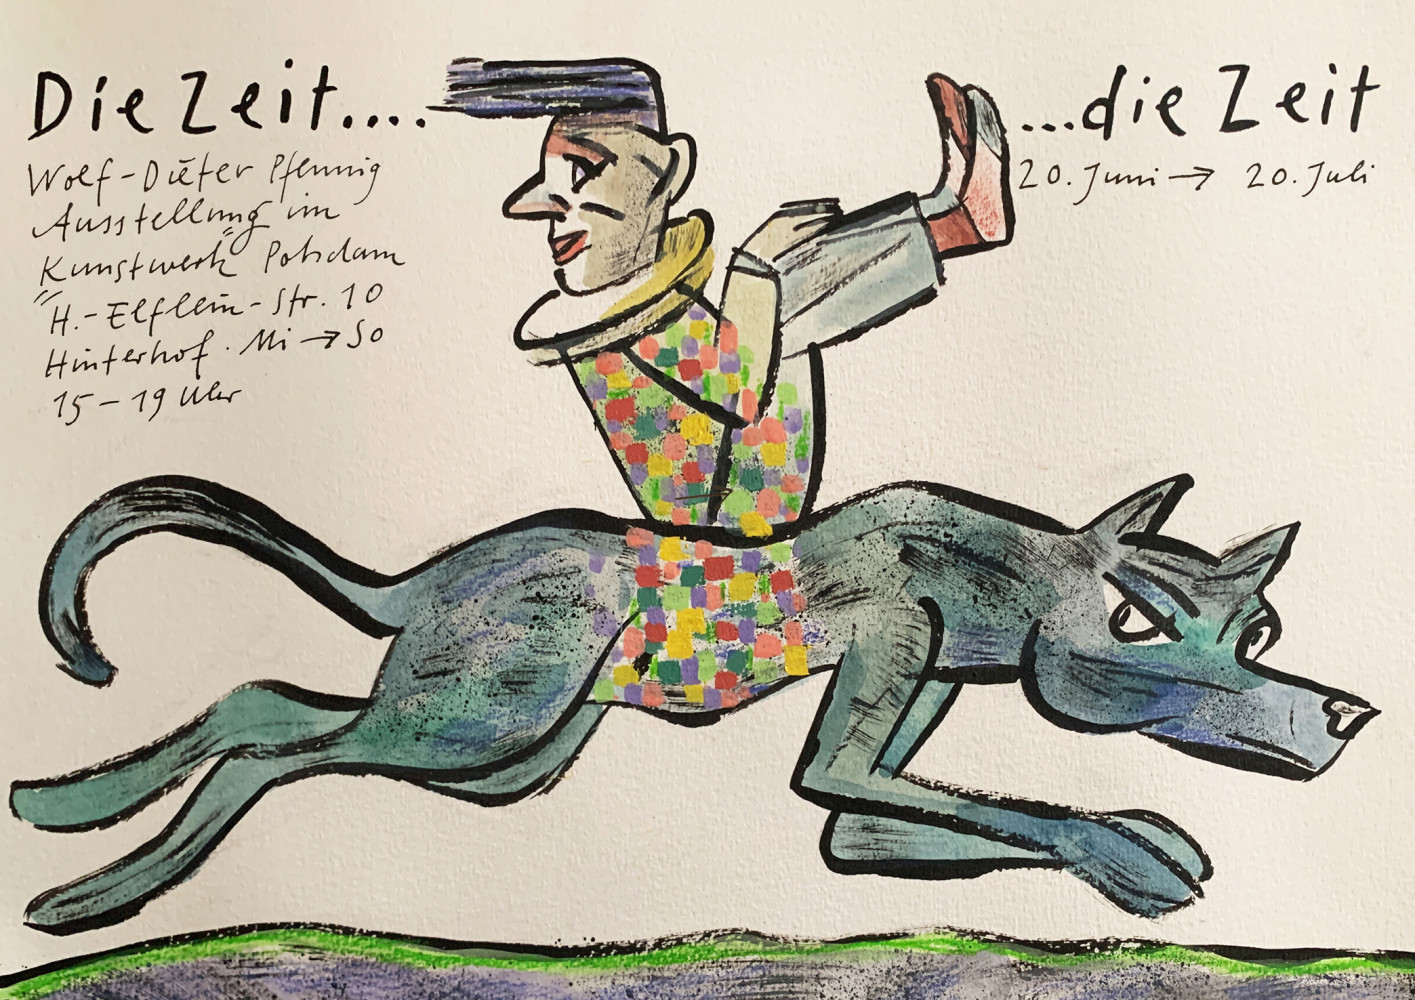 Die Zeit....
Wolf-Dieter Pfennig
Ausstellung im
"Kunstwerk" Potsdam
H.-Elflein-Str. 10
Hinterhof. Mi → So
15-19 Uhr
...die Zeit
20. Juni → 20. Juli